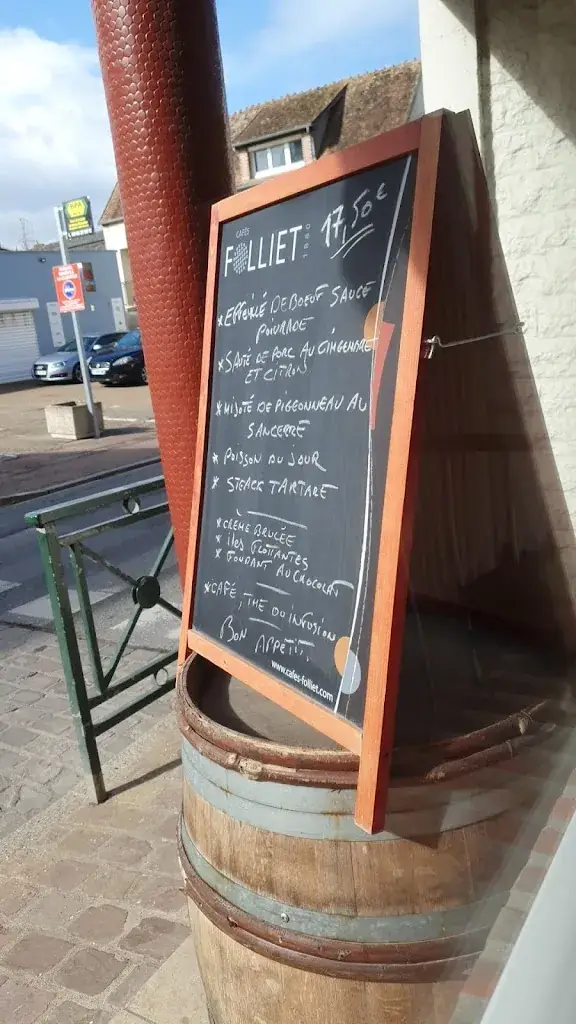 CAFÉS
FOLLIET
1880
17,50€
* EFFILÉ DE BOEUF SAUCE
POIVRADE
* SAUTÉ DE PORC AU GINGEMBRE
ET CITRON
* MIJOTÉ DE PIGEONNEAU AU
SANCERRE
* POISSON DU JOUR
* STEACK TARTARE
* CRÈME BRULÉE
* ILES FLOTTANTES
* FONDANT AU CHOCOLAT
* CAFÉ, THE OU INFUSION
BON APPETIT
www.cafes-folliet.com